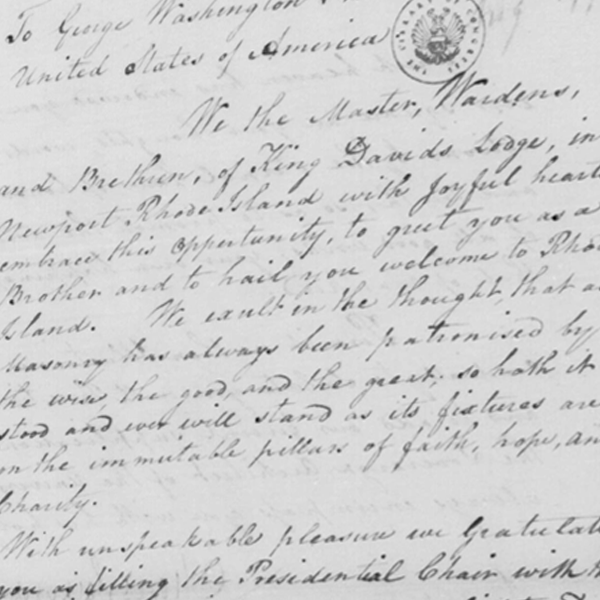 To George Washington
United States of America
THE LIBRARY OF CONGRESS
We the Master, Wardens,
and Brethren, of King Davids Lodge, in
Newport Rhode Island with Joyful heart
embrace this opportunity, to greet you as a
Brother and to hail you welcome to Rho
Island. We exult in the thought, that as
Masonry has always been patronised by
the wise, the good, and the great; so hath it
stood and ever will stand as its fixtures are
on the immutable pillars of faith, hope, an
Charity.
With unspeakable pleasure we Gratulate
you as filling the Presidential Chair with